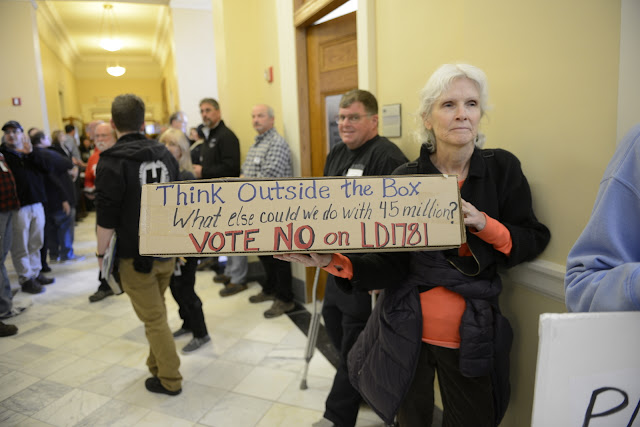 Think Outside the Box
What else could we do with 45 million?
VOTE NO on LD1781
P